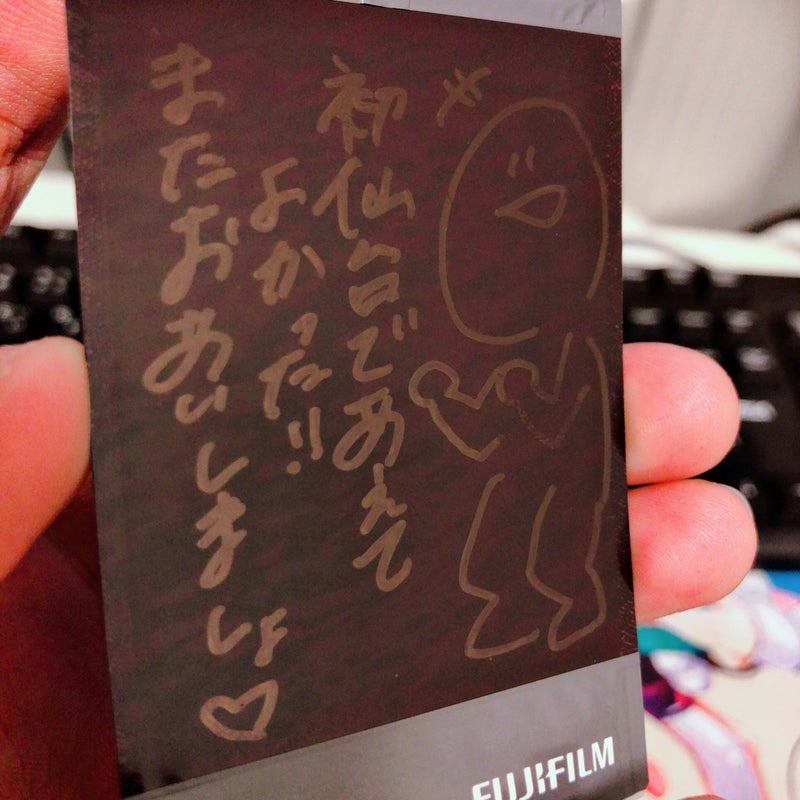 初仙台であえて
よかった!!
またおあいしましょ♡
FUJIFILM